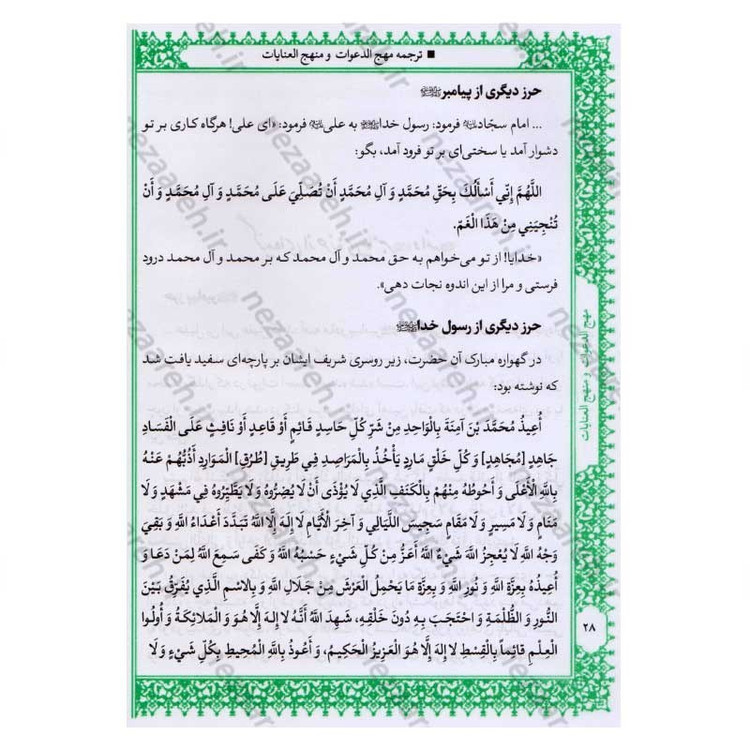 ■ ترجمه مهج الدعوات و منهج العنایات
حرز دیگری از پیامبرﷺ
... امام سجّاد؏ فرمود: رسول خداﷺ به علی؏ فرمود: «ای علی! هرگاه کاری بر تو
دشوار آمد یا سختی‌ای بر تو فرود آمد، بگو:
اللَّهُمَّ إِنِّي أَسْأَلُكَ بِحَقِّ مُحَمَّدٍ وَ آلِ مُحَمَّدٍ أَنْ تُصَلِّيَ عَلَى مُحَمَّدٍ وَ آلِ مُحَمَّدٍ وَ أَنْ
تُنْجِيَنِي مِنْ هَذَا الْغَمِّ.
«خدایا! از تو می‌خواهم به حق محمد و آل محمد که بر محمد و آل محمد درود
فرستی و مرا از این اندوه نجات دهی».
حرز دیگری از رسول خداﷺ
در گهواره مبارک آن حضرت، زیر روسری شریف ایشان بر پارچه‌ای سفید یافت شد
که نوشته بود:
أُعِيذُ مُحَمَّدَ بْنَ آمِنَةَ بِالْوَاحِدِ مِنْ شَرِّ كُلِّ حَاسِدٍ قَائِمٍ أَوْ قَاعِدٍ أَوْ نَافِثٍ عَلَى الْفَسَادِ
جَاهِدٍ [مُجَاهِدٍ] وَ كُلِّ خَلْقٍ مَارِدٍ يَأْخُذُ بِالْمَرَاصِدِ فِي طَرِيقِ [طُرُقِ] الْمَوَارِدِ أَذُبُّهُمْ عَنْهُ
بِاللَّهِ الْأَعْلَى وَ أَحُوطُهُ مِنْهُمْ بِالْكَنَفِ الَّذِي لَا يُؤْذَى أَنْ لَا يَضُرُّوهُ وَ لَا يَطَّيَّرُوهُ فِي مَشْهَدٍ وَ لَا
مَنَامٍ وَ لَا مَسِيرٍ وَ لَا مَقَامٍ سَجِيسَ اللَّيَالِي وَ آخِرَ الْأَيَّامِ لَا إِلَهَ إِلَّا اللَّهُ تَبَدَّدَ أَعْدَاءُ اللَّهِ وَ بَقِيَ
وَجْهُ اللَّهِ لَا يُعْجِزُ اللَّهَ شَيْءٌ اللَّهُ أَعَزُّ مِنْ كُلِّ شَيْءٍ حَسْبُهُ اللَّهُ وَ كَفَى سَمِعَ اللَّهُ لِمَنْ دَعَا وَ
أُعِيذُهُ بِعِزَّةِ اللَّهِ وَ نُورِ اللَّهِ وَ بِعِزَّةِ مَا يَحْمِلُ الْعَرْشَ مِنْ جَلَالِ اللَّهِ وَ بِالِاسْمِ الَّذِي يُفَرِّقُ بَيْنَ
النُّورِ وَ الظُّلْمَةِ وَ احْتَجَبَ بِهِ دُونَ خَلْقِهِ، شَهِدَ اللَّهُ أَنَّهُ لَا إِلَهَ إِلَّا هُوَ وَ الْمَلَائِكَةُ وَ أُولُوا
الْعِلْمِ قَائِماً بِالْقِسْطِ لَا إِلَهَ إِلَّا هُوَ الْعَزِيزُ الْحَكِيمُ، وَ أَعُوذُ بِاللَّهِ الْمُحِيطِ بِكُلِّ شَيْءٍ وَ لَا
مهج الدعوات و منهج العنایات
۲۸
nezaareh.ir